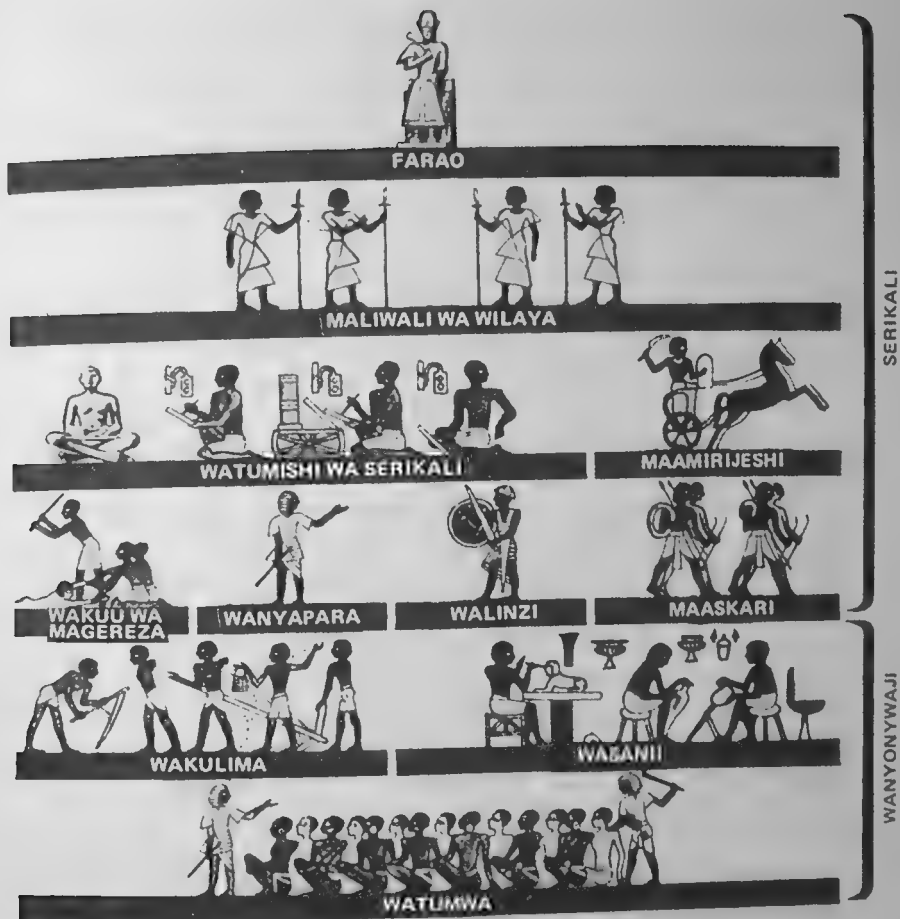 FARAO
MALIWALI WA WILAYA
WATUMISHI WA SERIKALI
MAAMIRIJESHI
WAKUU WA
MAGEREZA
WANYAPARA
WALINZI
MAASKARI
WAKULIMA
WASANII
WATUMWA
SERIKALI
WANYONYWAJI